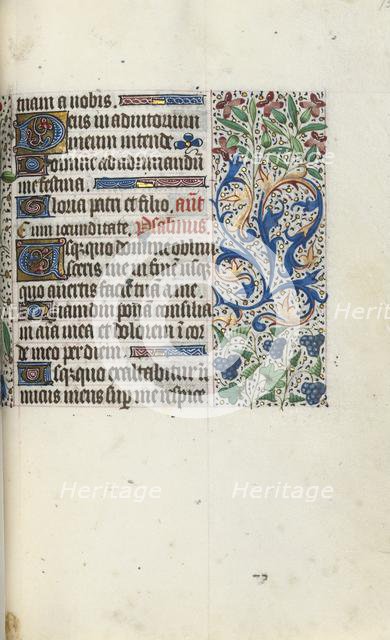 tuam a nobis.
Deus in adiutorium
meum intende
Domine ad adiuuandū
me festina.
Gloria patri et filio, añt
Cum iocunditate, Psalmus
Usq;quo domine obliui
sceris me in finē usq;
quo auertis faciē tuā a me
Quamdiu ponā consilia
in aīa mea et dolorem ī cor
de meo per diem.
Usq;quo exaltabitur ī
micus meus sup me respice
Heritage
Heritage
Heritage
Heritage
Heritage